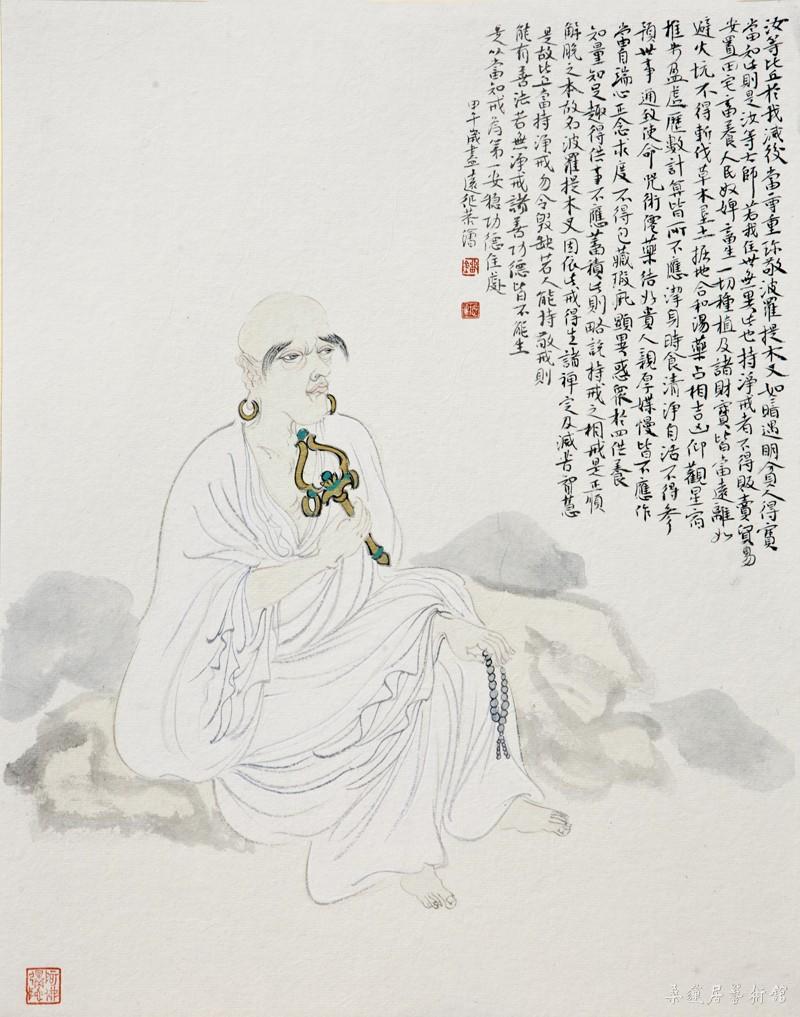 汝等比丘於我滅後當尊重珍敬波羅提木叉如暗遇明貧人得寶
當知此則是汝等大師若我住世無異此也持淨戒者不得販賣貿易
安置田宅畜養人民奴婢畜生一切種植及諸財寶皆當遠離如
避火坑不得斬伐草木墾土掘地合和湯藥占相吉凶仰觀星宿
推步盈虛歷數計算皆所不應潔身時食清淨自活不得參
預世事通致使命咒術僊藥結好貴人親厚媟慢皆不應作
當自端心正念求度不得包藏瑕疵顯異惑眾於四供養
知量知足趣得供事不應蓄積此則略說持戒之相戒是正順
解脫之本故名波羅提木叉因依此戒得生諸禪定及滅苦智慧
是故比丘當持淨戒勿令毀缺若人能持敬戒則
能有善法若無淨戒諸善功德皆不能生
是以當知戒為第一安穩功德住處
甲午歲
桑蓮居藝術館